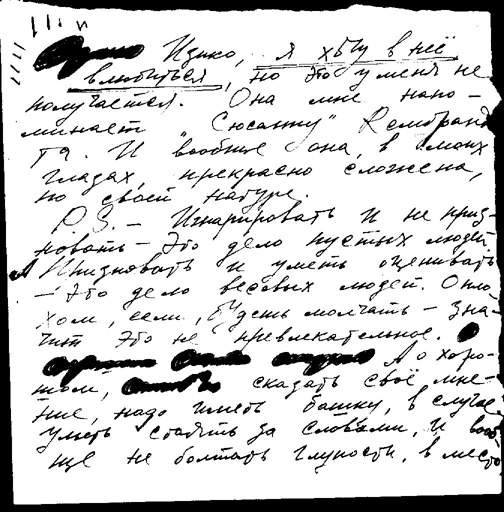 Изико, я хочу в неё
влюбиться, но это у меня не
получается. Она мне напо-
минает "Сюсанну" Рембранд
та. И вообще она, в моих
глазах, прекрасно сложена,
по своей натуре.
P.S. - Игнарировать и не приз-
новать - Это дело пустых людей.
А Призновать и уметь оценивать
- Это дело весовых людей. О пло
хом, если, будешь молчать - зна-
чит это не превлекательное.
А о хоро-
шом, сказать своё мне-
ние, надо иметь башку, в случае
уметь стоять за словами, и вооб
ще не болтать глупости, в место